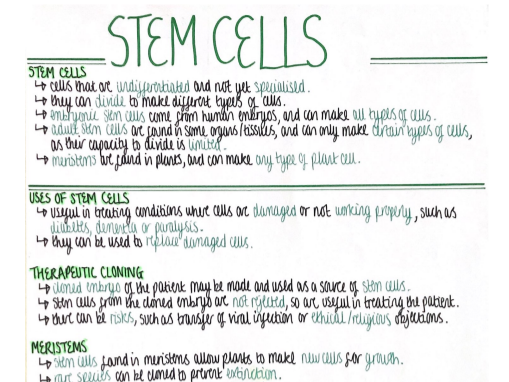 STEM CELLS
STEM CELLS
↳ cells that are undifferentiated and not yet specialised.
↳ they can divide to make different types of cells.
↳ embryonic stem cells come from human embryos, and can make all types of cells.
↳ adult stem cells are found in some organs/tissues, and can only make certain types of cells,
as their capacity to divide is limited.
↳ meristems are found in plants, and can make any type of plant cell.
USES OF STEM CELLS
↳ useful in treating conditions where cells are damaged or not working properly, such as
diabetes, dementia or paralysis.
↳ they can be used to replace damaged cells.
THERAPEUTIC CLONING
↳ cloned embryo of the patient may be made and used as a source of stem cells.
↳ stem cells from the cloned embryo are not rejected, so are useful in treating the patient.
↳ there can be risks, such as transfer of viral infection or ethical/religious objections.
MERISTEMS
↳ stem cells found in meristems allow plants to make new cells for growth.
↳ rare species can be cloned to prevent extinction.